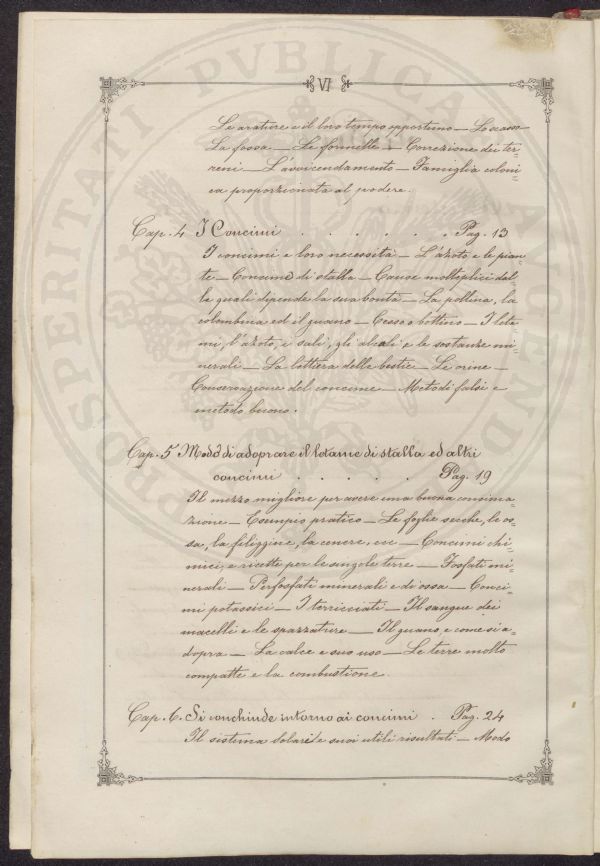 VI
Le arature e il loro tempo opportuno — Lo scasso
La fossa — Le fornelle — Correzione dei ter=
reni — L'avvicendamento — Famiglia coloni=
ca proporzionata al podere.
Cap. 4 I Concimi . . . . . . Pag. 13
I concimi e loro necessità — L'azoto e le pian=
te — Concime di stalla — Cause molteplici dal=
le quali dipende la sua bontà — La pollina, la
colombina ed il guano — Cesso o bottino — I leta=
mi, l'azoto, i sali, gli alcali e le sostanze mi=
nerali — La lettiera delle bestie — Le orine —
Conservazione del concime — Metodi falsi e
metodo buono.
Cap. 5 Modo di adoprare il letame di stalla ed altri
concimi . . . . . Pag. 19
Il mezzo migliore per avere una buona concima=
zione — Esempio pratico — Le foglie secche, le os=
sa, la filiggine, la cenere, ecc — Concimi chi=
mici, e ricette per le singole terre — Fosfati mi=
nerali — Perfosfati minerali e di ossa — Conci=
mi potassici — I terricciati — Il sangue dei
macelli e le spazzature — Il guano e come si a=
dopra — La calce e suo uso — Le terre molto
compatte e la combustione.
Cap. 6. Si conchiude intorno ai concimi . Pag. 24
Il sistema Solari e suoi utili risultati — Modo
PROSPERITATI PVBLICAE AVGENDAE